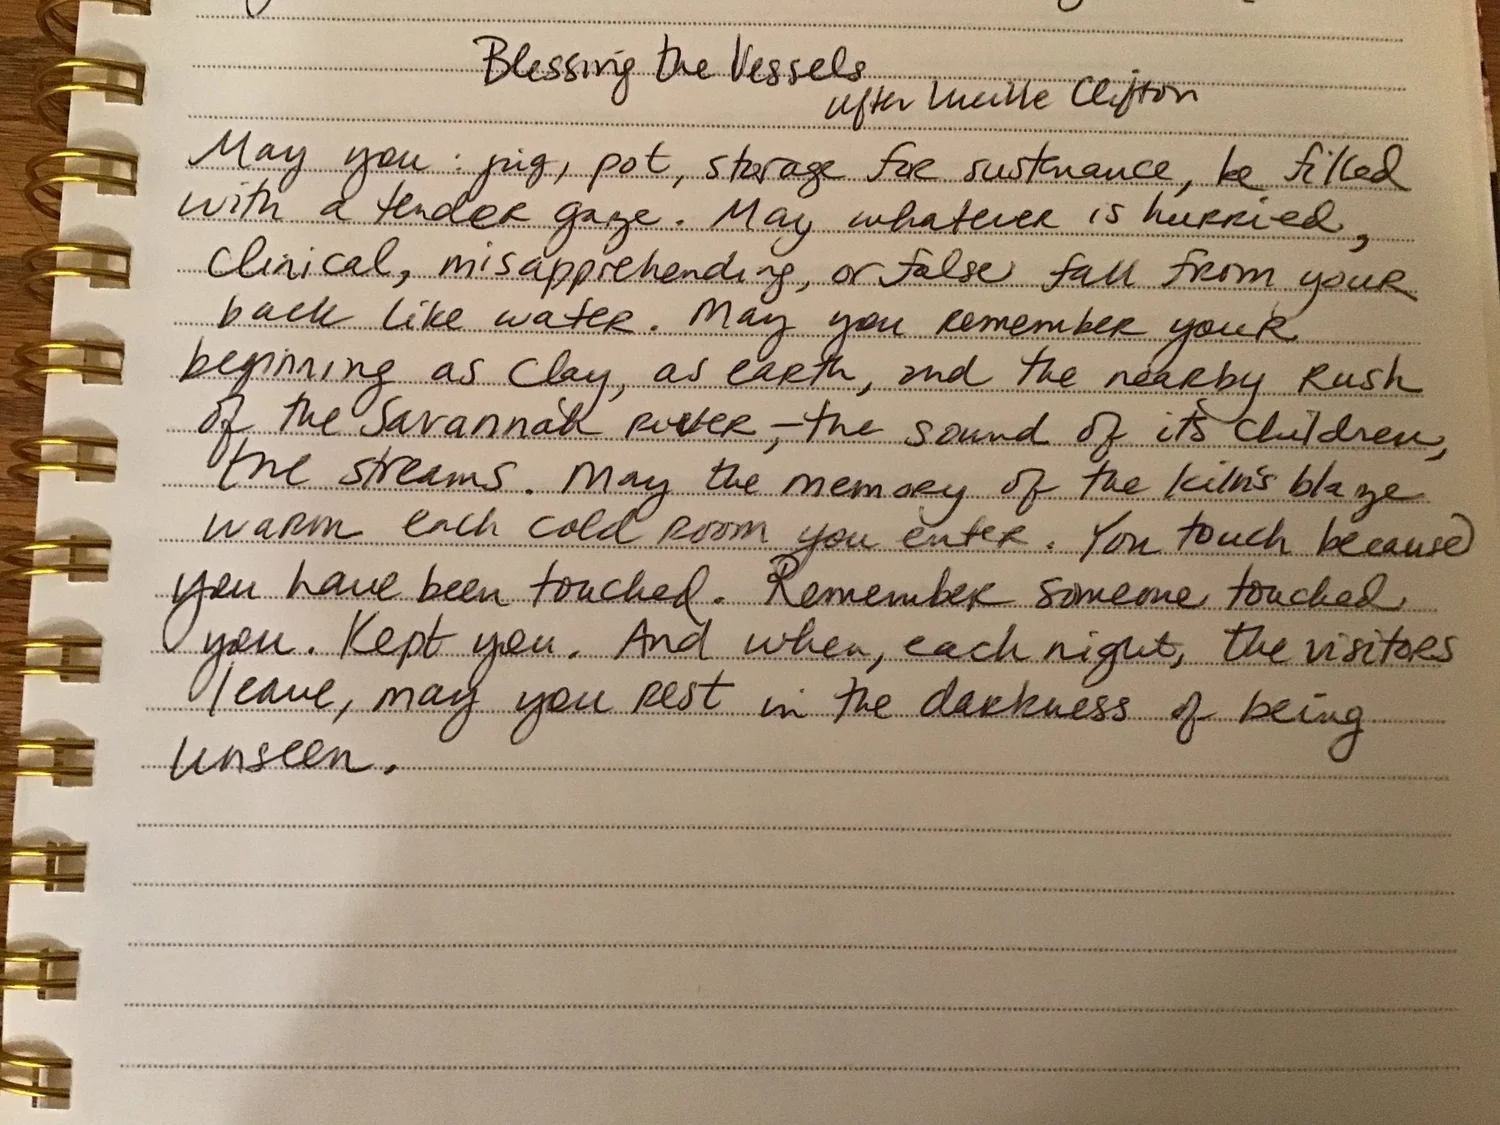 Blessing the Vessels
after Lucille Clifton
May you : jug, pot, storage for sustenance, be filled
with a tender gaze. May whatever is hurried,
clinical, misapprehending, or false fall from your
back like water. May you remember your
beginning as clay, as earth, and the nearby rush
of the Savannah River, – the sound of its children,
the streams. May the memory of the kiln's blaze
warm each cold room you enter. You touch because
you have been touched. Remember someone touched
you. Kept you. And when, each night, the visitors
leave, may you rest in the darkness of being
unseen.